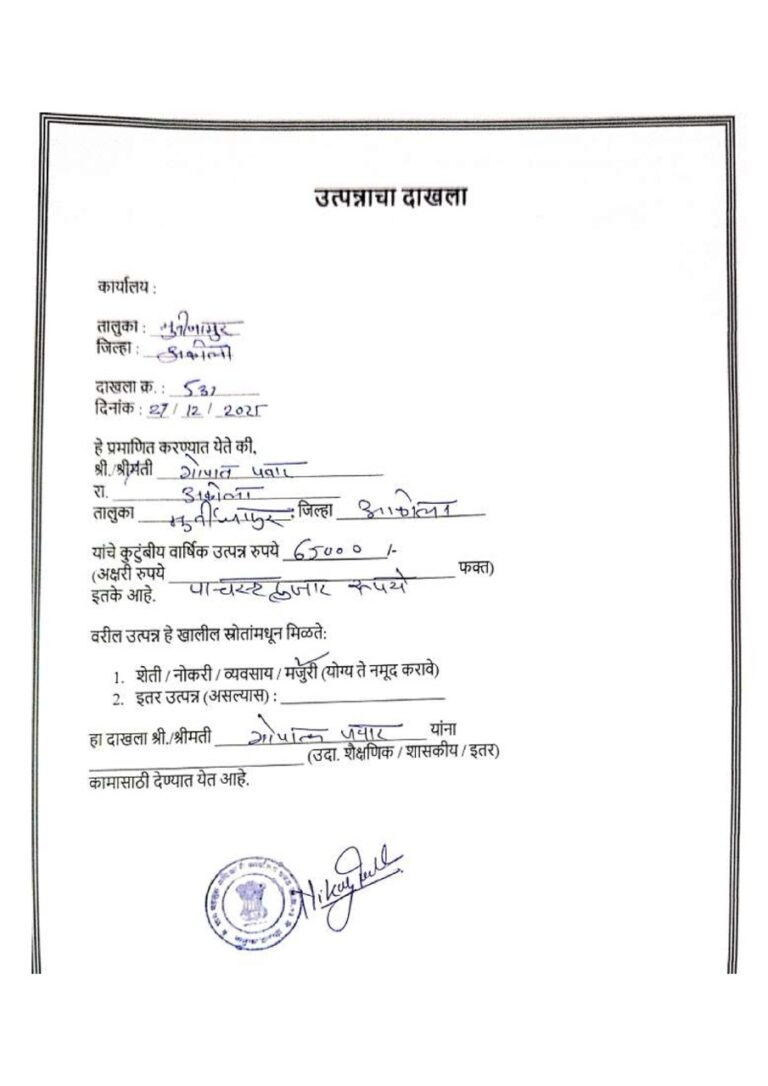 उत्पन्नाचा दाखला
कार्यालय :
तालुका : मुर्तीजापुर
जिल्हा : अकोला
दाखला क्र. : 531
दिनांक : 27 / 12 / 2025
हे प्रमाणित करण्यात येते की,
श्री./श्रीमती गोपाल पवार
रा. अकोला
तालुका मुर्तीजापुर, जिल्हा आकोला
यांचे कुटुंबीय वार्षिक उत्पन्न रुपये 65000 /-
(अक्षरी रुपये फक्त)
इतके आहे. पाचस्ट हजार रुपये
वरील उत्पन्न हे खालील स्रोतांमधून मिळते:
1. शेती / नोकरी / व्यवसाय / मजुरी (योग्य ते नमूद करावे)
2. इतर उत्पन्न (असल्यास) :
हा दाखला श्री./श्रीमती गोपाल पवार यांना
(उदा. शैक्षणिक / शासकीय / इतर)
कामासाठी देण्यात येत आहे.